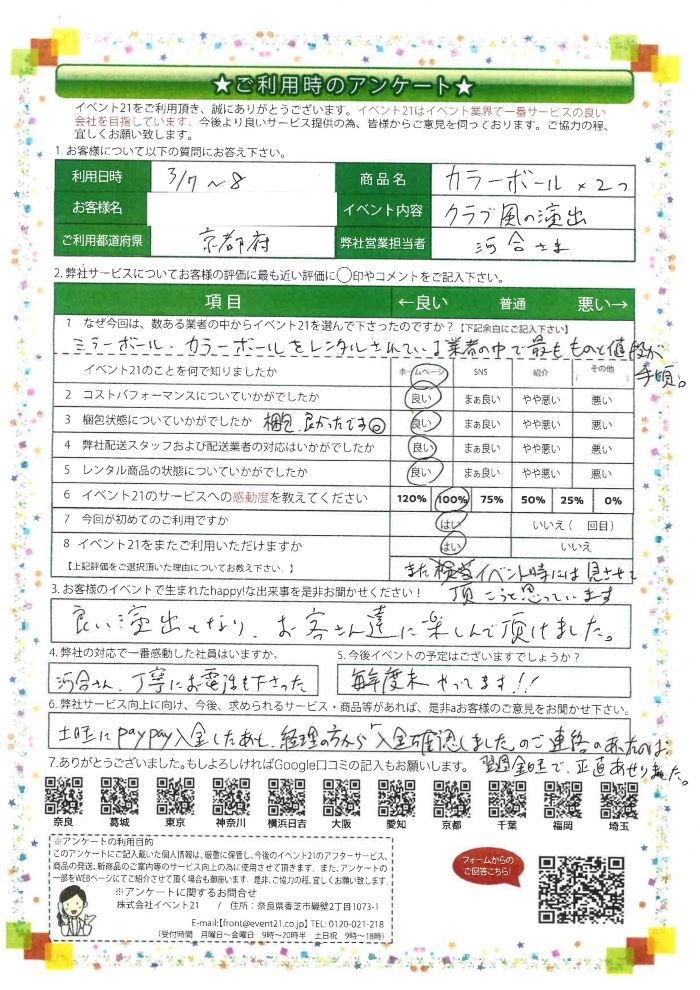 ★ご利用時のアンケート★
イベント21をご利用頂き、誠にありがとうございます。イベント21はイベント業界で一番サービスの良い
会社を目指しています。今後より良いサービス提供の為、皆様からご意見を伺っております。ご協力の程、
宜しくお願い致します。
1. お客様について以下の質問にお答え下さい。
利用日時 3/7〜8 商品名 カラーボール×2つ
お客様名 イベント内容 クラブ風の演出
ご利用都道府県 京都府 弊社営業担当者 河合さま
2. 弊社サービスについてお客様の評価に最も近い評価に◯印やコメントをご記入下さい。
項目 ←良い 普通 悪い→
1 なぜ今回は、数ある業者の中からイベント21を選んで下さったのですか?【下記余白にご記入下さい】
ミラーボール・カラーボールをレンタルされている業者の中で最もものと値段が
手頃。
イベント21のことを何で知りましたか ホームページ SNS 紹介 その他 ( )
2 コストパフォーマンスについていかがでしたか 良い まぁ良い やや悪い 悪い
3 梱包状態についていかがでしたか 梱包、良かったです。 良い まぁ良い やや悪い 悪い
4 弊社配送スタッフおよび配送業者の対応はいかがでしたか 良い まぁ良い やや悪い 悪い
5 レンタル商品の状態についていかがでしたか 良い まぁ良い やや悪い 悪い
6 イベント21のサービスへの感動度を教えてください 120% 100% 75% 50% 25% 0%
7 今回が初めてのご利用ですか はい いいえ( 回目)
8 イベント21をまたご利用いただけますか はい いいえ
【上記評価をご選択頂いた理由についてお教え下さい。】 また イベント時には見させて
頂こうと思っています
3. お客様のイベントで生まれたhappy!な出来事を是非お聞かせください!
良い演出となり、お客さん達に楽しんで頂けました。
4. 弊社の対応で一番感動した社員はいますか。 5. 今後イベントの予定はございますでしょうか?
河合さん、丁寧にお電話も下さった 毎年度末やってます!!
6. 弊社サービス向上に向け、今後、求められるサービス・商品等があれば、是非aお客様のご意見をお聞かせ下さい。
土曜にpaypay入金したあと、経理の方から「入金確認しました」のご連絡のあったのは、
翌週金曜で、正直あせりました。
7.ありがとうございました。もしよろしければGoogle口コミの記入もお願いします。
奈良 葛城 東京 神奈川 横浜日吉 大阪 愛知 京都 千葉 福岡 埼玉
※アンケートの利用目的
このアンケートにご記入戴いた個人情報は、厳重に保管し、今後のイベント21のアフターサービス、
商品の発送、新商品のご案内等のサービス向上の為に使用させて頂きます。また、アンケートの
一部をWEBページにてご紹介させて頂く場合も御座います。是非、ご協力の程、宜しくお願い致します。
※アンケートに関するお問合せ
株式会社イベント21 / 住所:奈良県香芝市磯壁2丁目1073-1
E-mail:【front@event21.co.jp】 TEL: 0120-021-218
(受付時間 月曜日〜金曜日 9時〜20時半 土日祝 9時〜18時)
フォームからの
ご回答こちら!